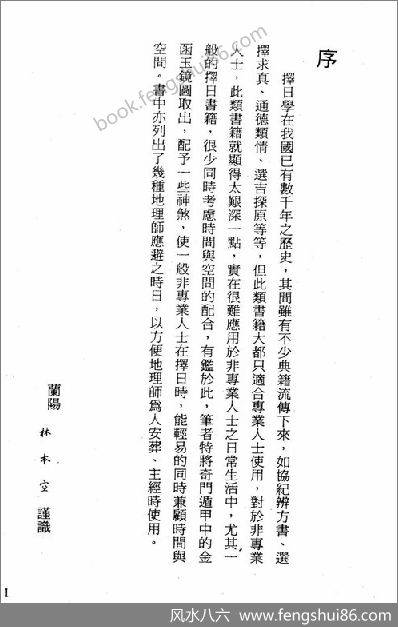 序
擇日學在我國已有數千年之歷史，其間雖有不少典籍流傳下來，如協紀辨方書、選
擇求真、通德類情、選吉探原等等，但此類書籍大都只適合專業人士使用，對於非專業
人士，此類書籍就顯得太艱深一點，實在很難應用於非專業人士之日常生活中，尤其一
般的擇日書籍，很少同時考慮時間與空間的配合，有鑑於此，筆者特將奇門遁甲中的金
函玉鏡圖取出，配予一些神煞，使一般非專業人士在擇日時，能輕易的同時兼顧時間與
空間。書中亦列出了幾種地理師應避之時日，以方便地理師為人安葬、主經時使用。
蘭陽 林本立 謹識
1
book.fengshui86.com
风水八六 www.fengshui86.com